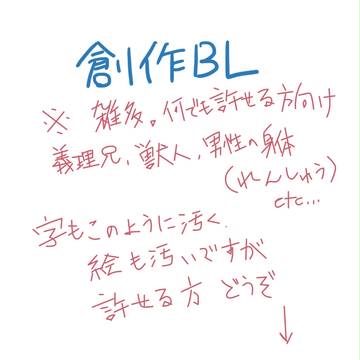 創作BL
※ 雑多。何でも許せる方向け
義理兄,獣人,男性の身体
(れんしゅう)
etc...
字もこのように汚く、
絵も汚いですが
許せる方 どうぞ
↓